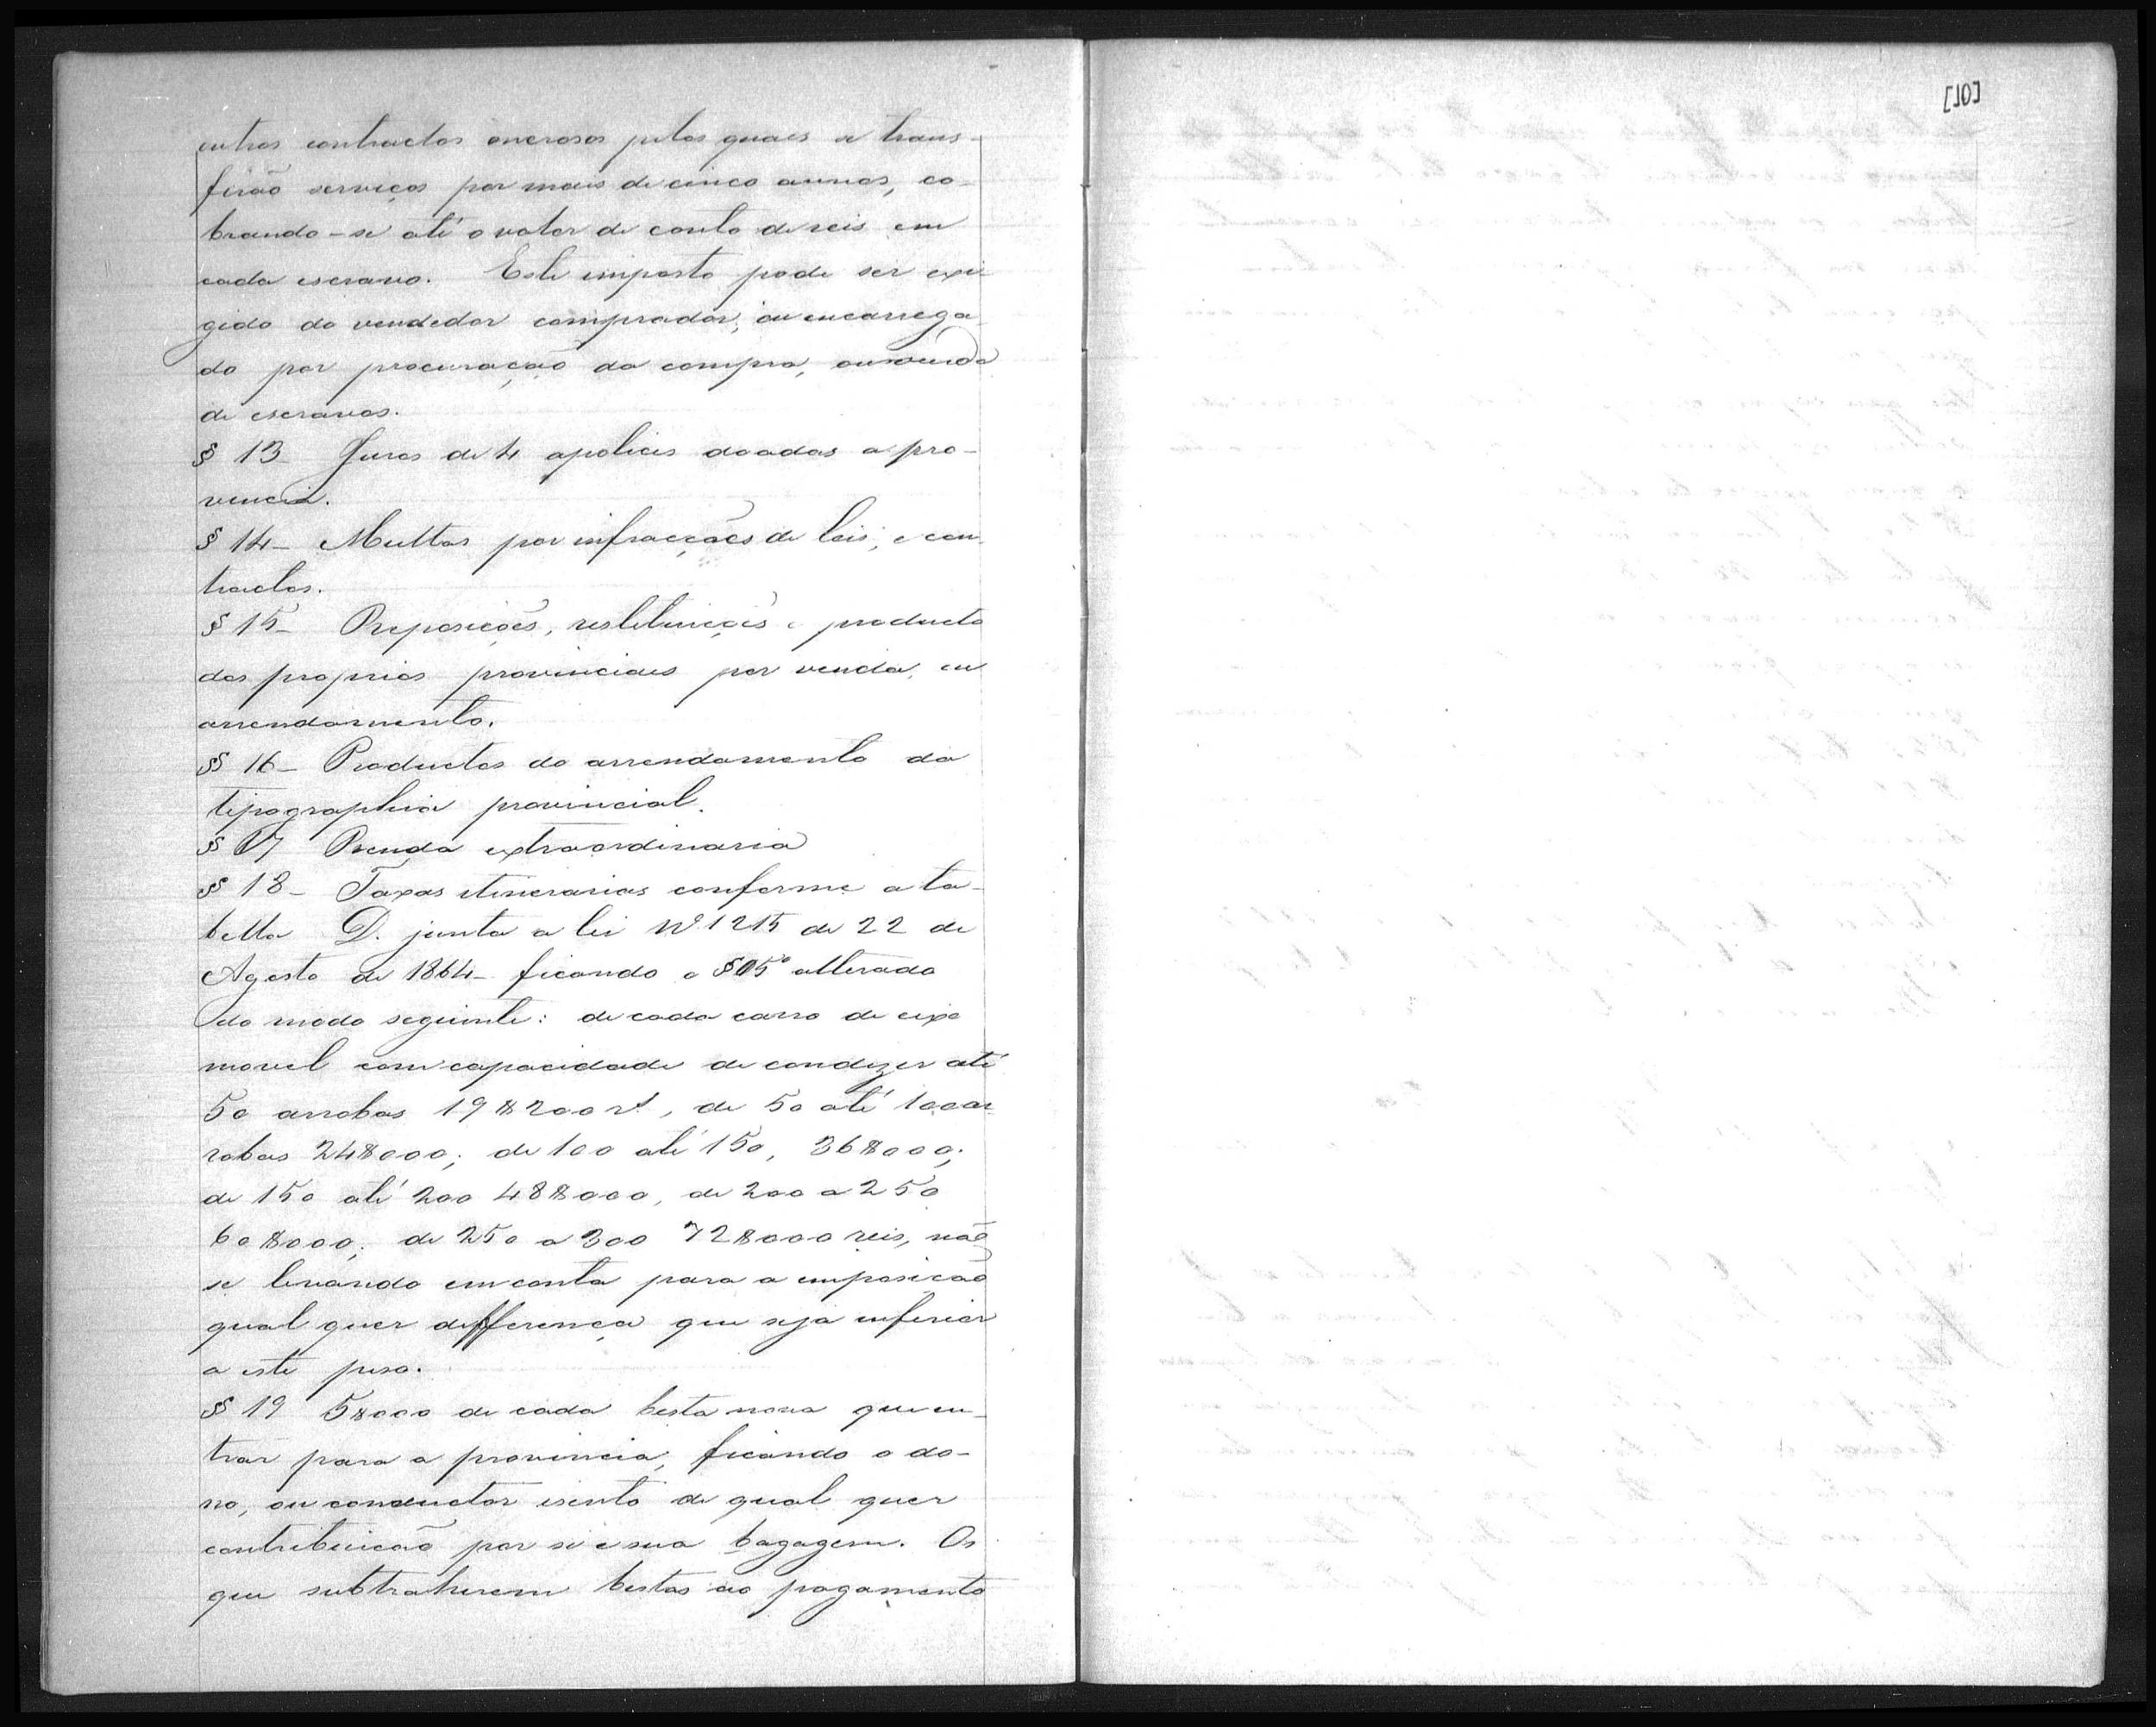 outros contractos onerosos pelos quaes se trans-
firão serviços por mais de cinco annos, co-
brando-se até o valor de conto de reis em
cada escravo. Este imposto pode ser exi
gido do vendedor comprador, ou encarrega
do por procuração da compra, ou venda
de escravos.
§ 13 Juros de 4 apolices doadas a pro-
vencia.
§ 14- Multas por infracções de leis, e con
tractos.
§ 15- Reposições, restetuições e producto
dos proprios provinciaes por venda, ou
arrendamento.
§ 16- Productos do arrendamento da
tipographia provincial.
§ 17 Renda extraordinaria
§ 18- Taxas itinerarias conforme a ta-
bella D. junta a lei Nº 1215 de 22 de
Agosto de 1864- ficando o § 5º alterado
do modo seguinte: de cada carro de eixo
movel com capacidade de condezer até
50 arrobas 19$200 rs, de 50 até 100 ar
robas 24$000; de 100 até 150, 36$000;
de 150 até 200 48$000, de 200 a 250
60$000; de 250 a 300 72$000 reis, não
se levando em conta para a imposição
qual quer differença que seja inferior
a este peso.
§ 19 5$000 de cada besta nova que en-
trar para a provincia, ficando o do-
no, ou conductor isento de qual quer
contribuição por si e sua bagagem. Os
que subtrahirem bestas ao pagamento
[10]